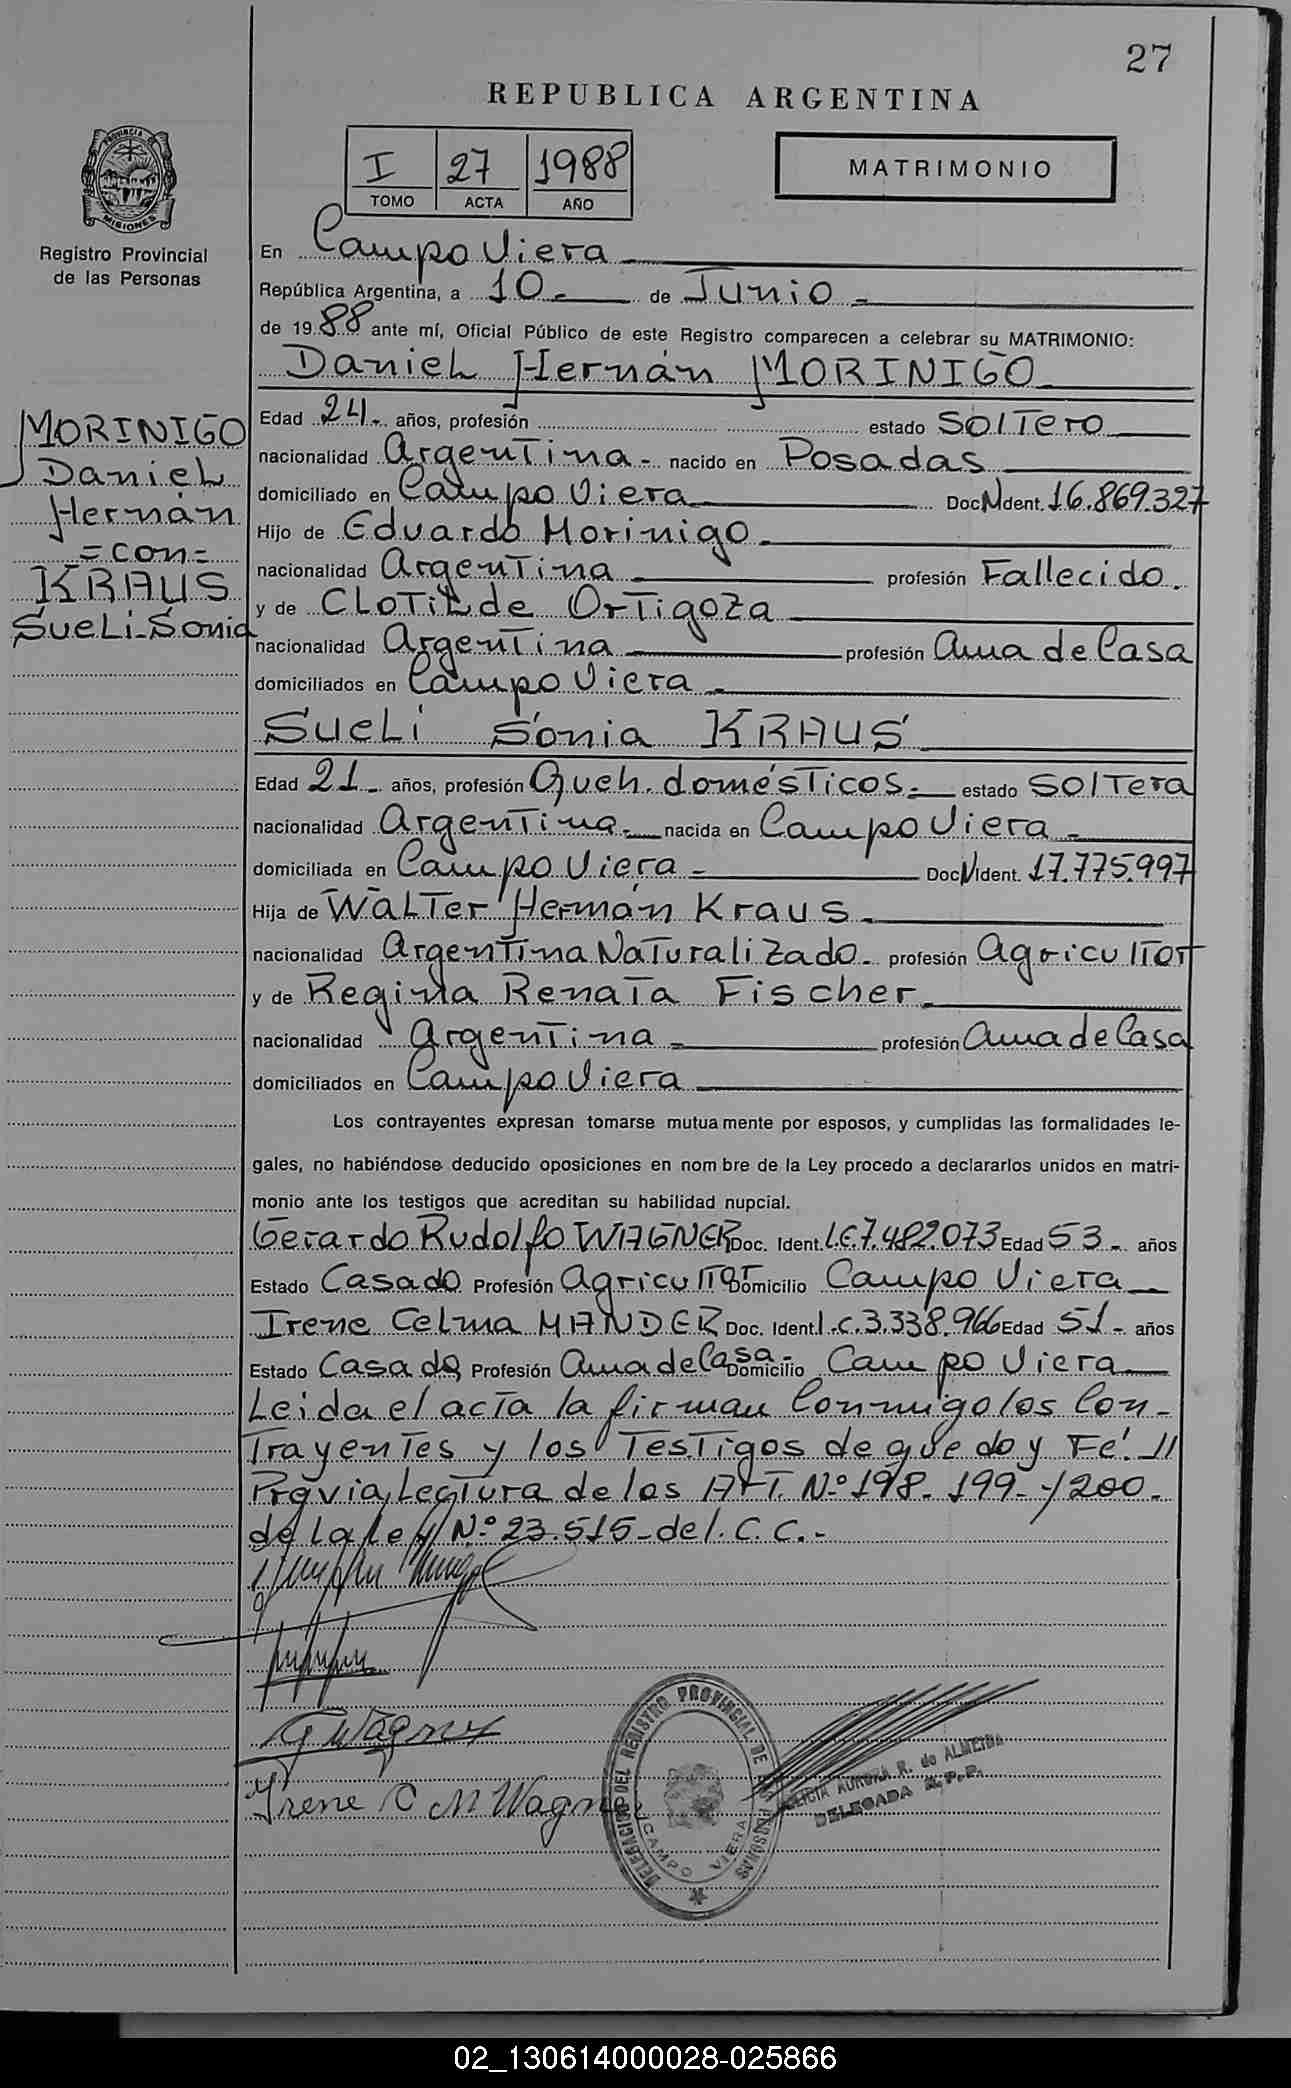 27
REPUBLICA ARGENTINA
I 27 1988
TOMO ACTA AÑO
MATRIMONIO
PROVINCIA DE MISIONES
Registro Provincial
de las Personas
En Campo Viera
República Argentina, a 10.- de Junio.-
de 1988 ante mí, Oficial Público de este Registro comparecen a celebrar su MATRIMONIO:
Daniel Hernán MORINIGO
MORINIGO
Daniel
Hernán
=con=
KRAUS
Sueli Sonia
Edad 24.- años, profesión estado Soltero
nacionalidad Argentina.- nacido en Posadas
domiciliado en Campo Viera Doc.N Ident. 16.869.327
Hijo de Eduardo Morinigo.
nacionalidad Argentina profesión Fallecido.
y de Clotilde Ortigoza
nacionalidad Argentina profesión Ama de Casa
domiciliados en Campo Viera.-
Sueli Sonia KRAUS
Edad 21.- años, profesión Queh. domésticos.- estado Soltera
nacionalidad Argentina.- nacida en Campo Viera.-
domiciliada en Campo Viera.- Doc.N Ident. 17.775.997
Hija de Walter Hermán Kraus.
nacionalidad Argentina Naturalizado.- profesión Agricultor
y de Regina Renata Fischer.
nacionalidad Argentina.- profesión Ama de Casa
domiciliados en Campo Viera
Los contrayentes expresan tomarse mutuamente por esposos, y cumplidas las formalidades le-
gales, no habiéndose deducido oposiciones en nombre de la Ley procedo a declararlos unidos en matri-
monio ante los testigos que acreditan su habilidad nupcial.
Gerardo Rudolfo WAGNER Doc. Ident. L.E.7.482.073 Edad 53.- años
Estado Casado Profesión Agricultor Domicilio Campo Viera
Irene Celma MANDER Doc. Ident. L.C.3.338.966 Edad 51.- años
Estado Casada Profesión Ama de Casa.- Domicilio Campo Viera
Leida el acta la firman Conmigo los Con-
trayentes y los Testigos de que doy Fé. //
Previa, Lectura de los Art. N.º 198.- 199.- y 200.-
de la ley N.º 23.515.- del. C. C..-
G Wagner
Irene C M Wagner
DELEGACION DEL REGISTRO PROVINCIAL DE LAS PERSONAS
CAMPO VIERA
ALICIA AURORA R. de ALMEIDA
DELEGADA R.P.P.
02_130614000028-025866